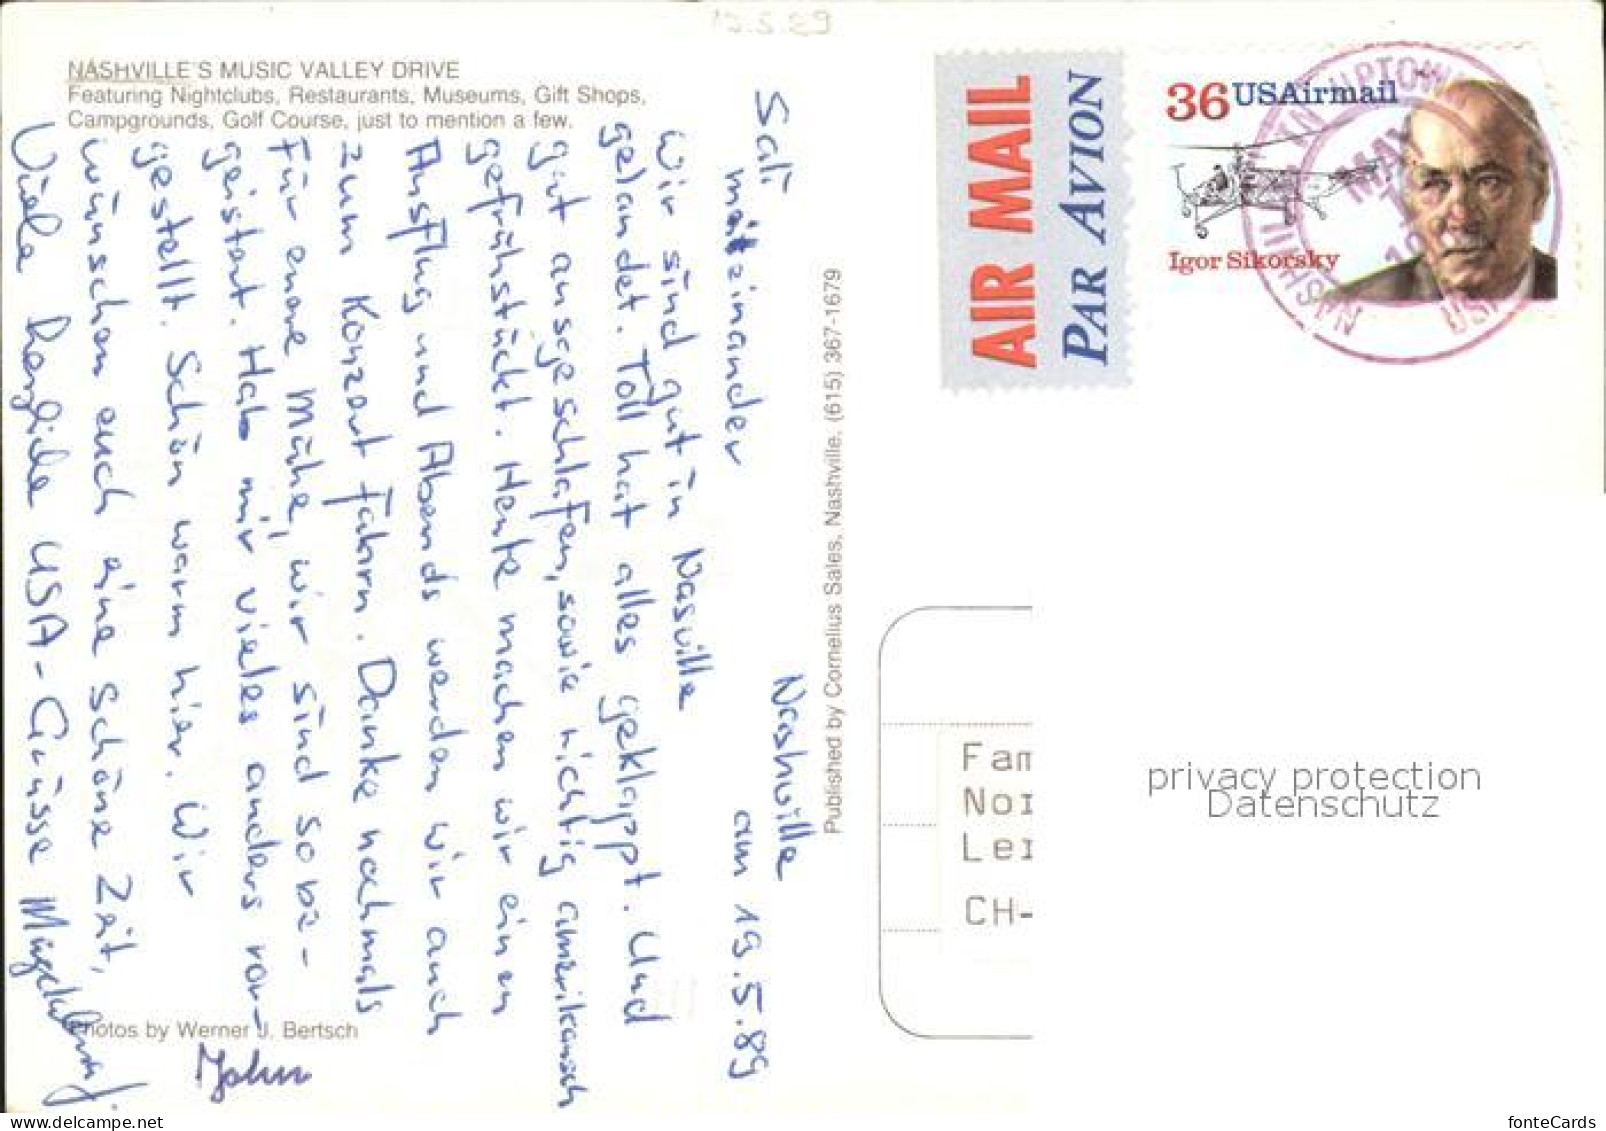 15.5.89
NASHVILLE'S MUSIC VALLEY DRIVE
Featuring Nightclubs, Restaurants, Museums, Gift Shops,
Campgrounds, Golf Course, just to mention a few.
Nashville
am 19.5.89
Sali
mitzinander
Wir sind gut in Nasville
gelandet. Toll hat alles geklappt. Und
gut ausgeschlafen, sowie richtig amerikanisch
gefrühstückt. Heute machen wir einen
Ausflug und Abends werden wir auch
zum Konzert fahrn. Danke nochmals
für euere Mühe, wir sind so be-
geistert. Hab mir vieles anders vor-
gestellt. Schön warm hier. Wir
wünschen euch eine schöne Zeit,
Viele herzliche USA-Grüsse
John
Photos by Werner J. Bertsch
Published by Cornelius Sales, Nashville, (615) 367-1679
AIR MAIL
PAR AVION
36 USAirmail
Igor Sikorsky
UPTOWN
MAY
NASHVILLE
USA
Fam
Nor
Lei
CH-
privacy protection
Datenschutz
fonteCards